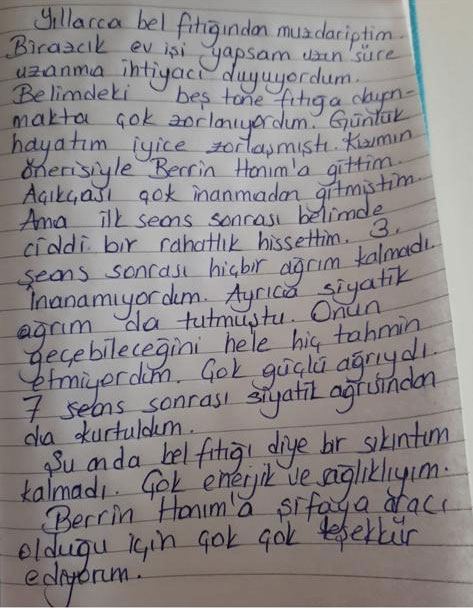 Yıllarca bel fıtığından muzdariptim.
Birazcık ev işi yapsam uzun süre
uzanma ihtiyacı duyuyordum.
Belimdeki beş tane fıtığa dayan-
makta çok zorlanıyordum. Günlük
hayatım iyice zorlaşmıştı. Kızımın
önerisiyle Berrin Hanım'a gittim.
Açıkçası çok inanmadan gitmiştim.
Ama ilk seans sonrası belimde
ciddi bir rahatlık hissettim. 3.
seans sonrası hiçbir ağrım kalmadı.
İnanamıyordum. Ayrıca siyatik
ağrım da tutmuştu. Onun
geçebileceğini hele hiç tahmin
etmiyordum. Çok güçlü ağrıydı.
7 seans sonrası siyatik ağrısından
da kurtuldum.
Şu anda bel fıtığı diye bir sıkıntım
kalmadı. Çok enerjik ve sağlıklıyım.
Berrin Hanım'a şifaya aracı
olduğu için çok çok teşekkür
ediyorum.